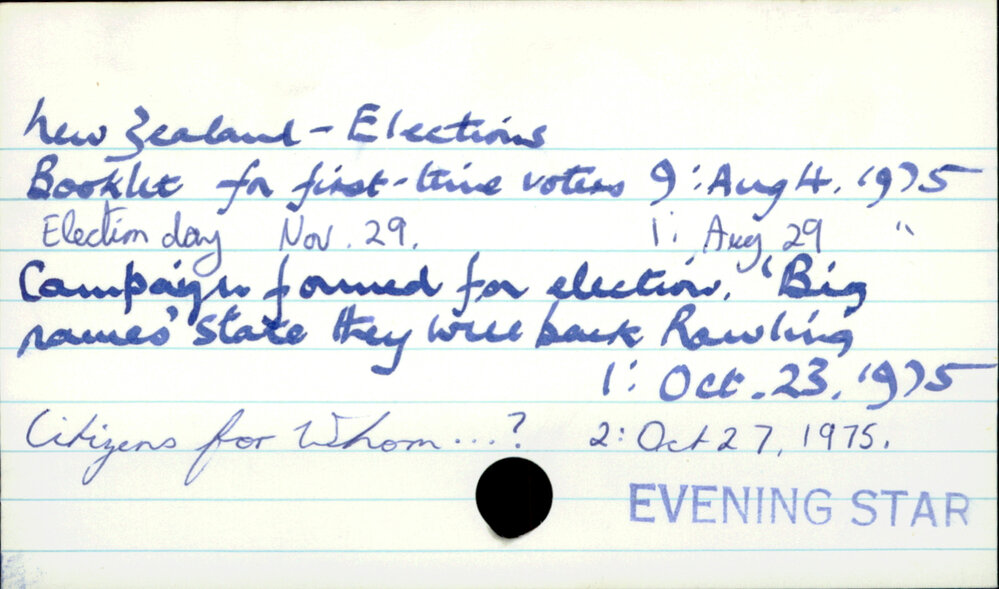 New Zealand - Elections
Booklet for first-time voters 9: Aug 4. 1975
Election day Nov. 29. 1: Aug 29 "
Campaign formed for election. 'Big
names' state they will back Rowling
1: Oct. 23. 1975
Citizens for Whom...? 2: Oct 27, 1975.
EVENING STAR